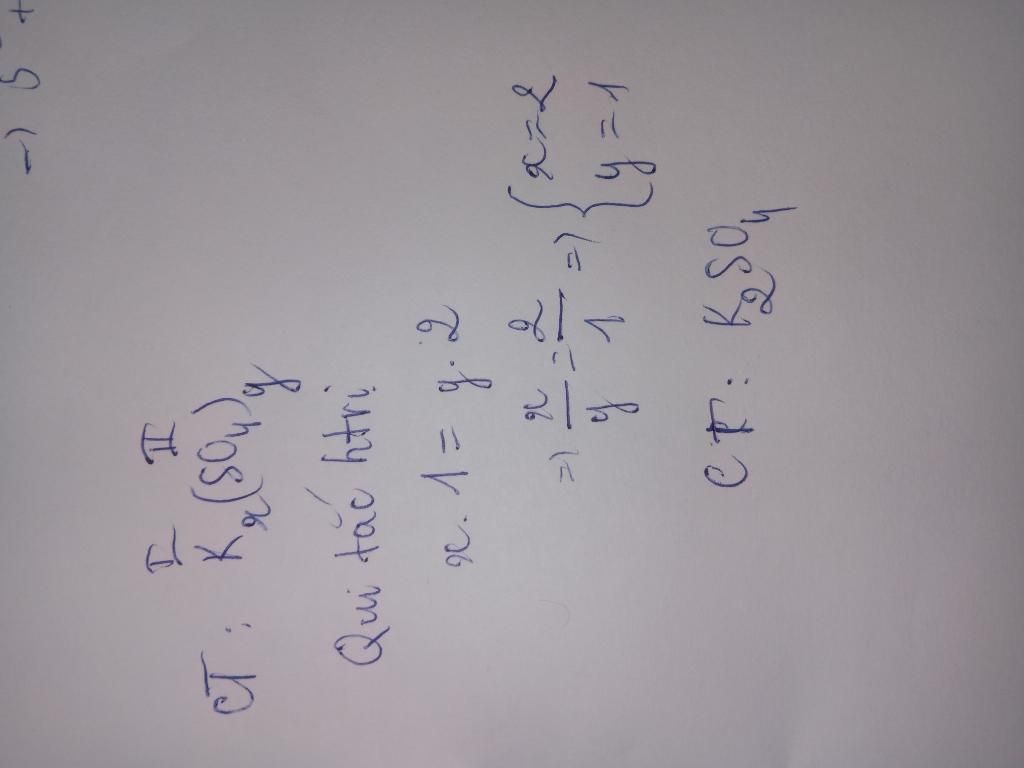 =) 5 +
I II
CT : Kx(SO4)y
Qui tắc htrị
x. 1 = y. 2
=) x/y = 2/1 =) { x = 2
y = 1
CT : K2SO4